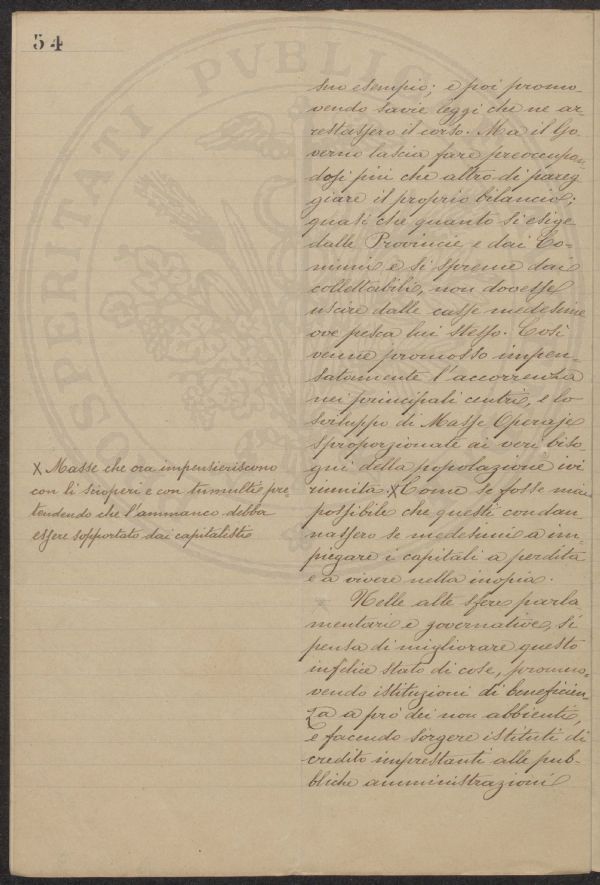 54
PROSPERITATI PVBLICAE
suo esempio; e poi promo-
vendo savie leggi che ne ar-
restassero il corso. Ma il Go
verno lascia fare preoccupan-
dosi più che altro di pareg
giare il proprio bilancio;
quasi che quanto si esige
dalle Provincie e dai Co-
muni e si spreme dai
collettabili, non dovesse
uscire dalle casse medesime
ove pesca lui stesso. Così
venne promosso impen-
satamente l'accorrenza
nei principali centri, e lo
sviluppo di Masse Operaje
sproporzionate ai veri biso-
gni della popolazione ivi
riunita. X Come se fosse mai
possibile che questi condan-
nassero se medesimi a im-
piegare i capitali a perdita
e a vivere nella inopia.
Nelle alte sfere parla
mentari e governative, si
pensa di migliorare questo
infelice stato di cose, promo-
vendo istituzioni di beneficien-
za a prò dei non abbienti,
e facendo sorgere istituti di
credito imprestanti alle pub-
bliche amministrazioni
X Masse che ora impensieriscono
con li scioperi e con tumulti pre-
tendendo che l'ammanco debba
essere sopportato dai capitalisti